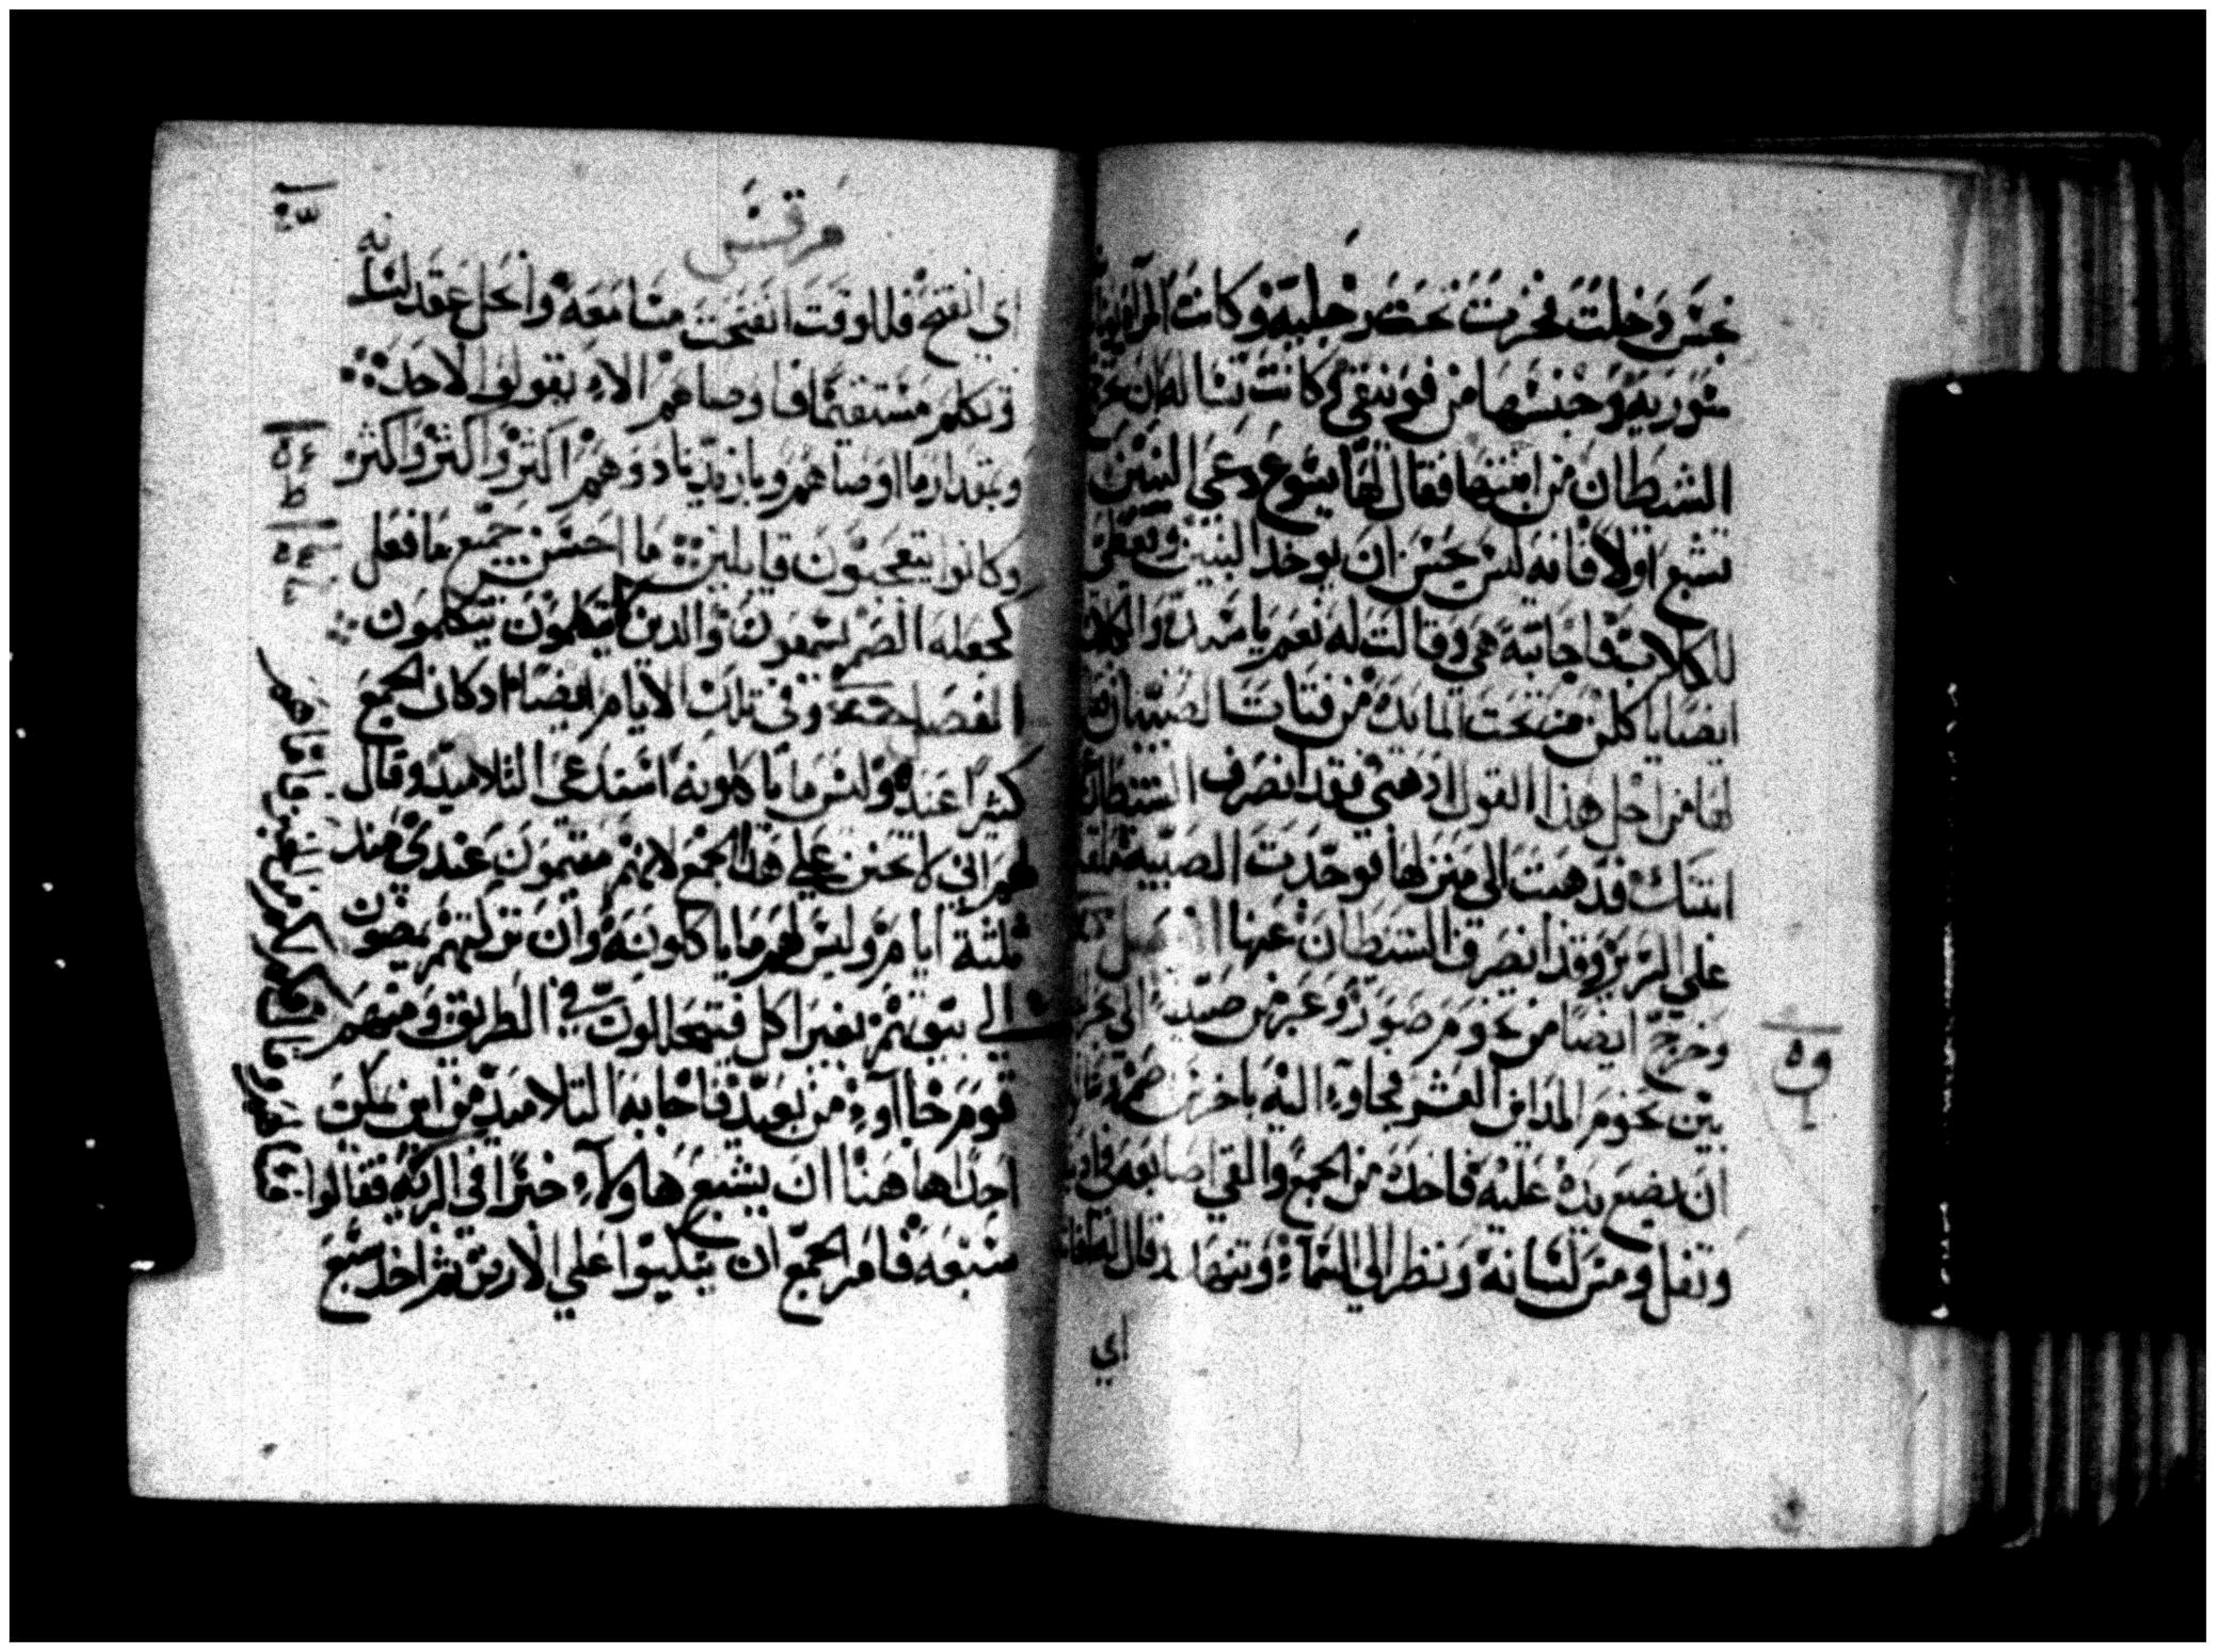 نجس دخلت فخرت تحت رجليه وكانت المراه
سوريه وجنسها من فونيقي وكانت تساله ان
الشيطان من ابنتها فقال لها يسوع دعي البنين
تشبع اولا فانه ليس يحسن ان يوخد البنين
للكلاب فاجابته هي وقالت له نعم يا سيدي والكلاب
ايضا ياكلن من تحت المايده من فتات الصبيان
لها من اجل هذا القول ادهبي فقد انصرف الشيطان
ابنتك فدهبت الى منزلها فوجدت الصبيه
على السرير وقد انصرف الشيطان عنها
وخرج ايضا من تخوم صور وعبر من صيدا الى
بين تخوم المداين العشر فجاوء اليه باخرس
ان يضع يده عليه فاخده من الجمع والقي اصابعه في
وتفل ومس لسانه ونظر الي السماء وتنهد
اي
مرقس
اي انفتح فللوقت انفتحت مسامعه وانحل عقد لسانه
وتكلم مستقيما فاوصاهم الاء يقولوا لاحد
وبمقدار ما اوصاهم وبازيدياد وهم اكثر واكثر
وكانوا يتعجبون قايلين ما احسن جميع ما فعل
كجعله الصم يسمعون والدين لا يتكلمون يتكلمون
وفي تلك الايام ايضا اد كان الجمع
كثيرا عنده وليس ما ياكلونه استدعى التلاميد وقال
لهم اني لاتحنن علي هدا الجمع لانهم مقيمون عندي مند
ثلثة ايام وليس لهم ما ياكلونه وان تركتهم يمضون
الي بيوتهم بغير اكل فيتحللون في الطريق ومنهم
قوم جااوء من بعيد فاجابه التلاميد من اين يمكن
احدا هاهنا ان يشبع هاولاء خبزا في البريه فقالوا
سبعه فامر الجمع ان يتكيوا علي الارض ثم اخد سبع
فاجابهم وقال لهم كم من الخبز